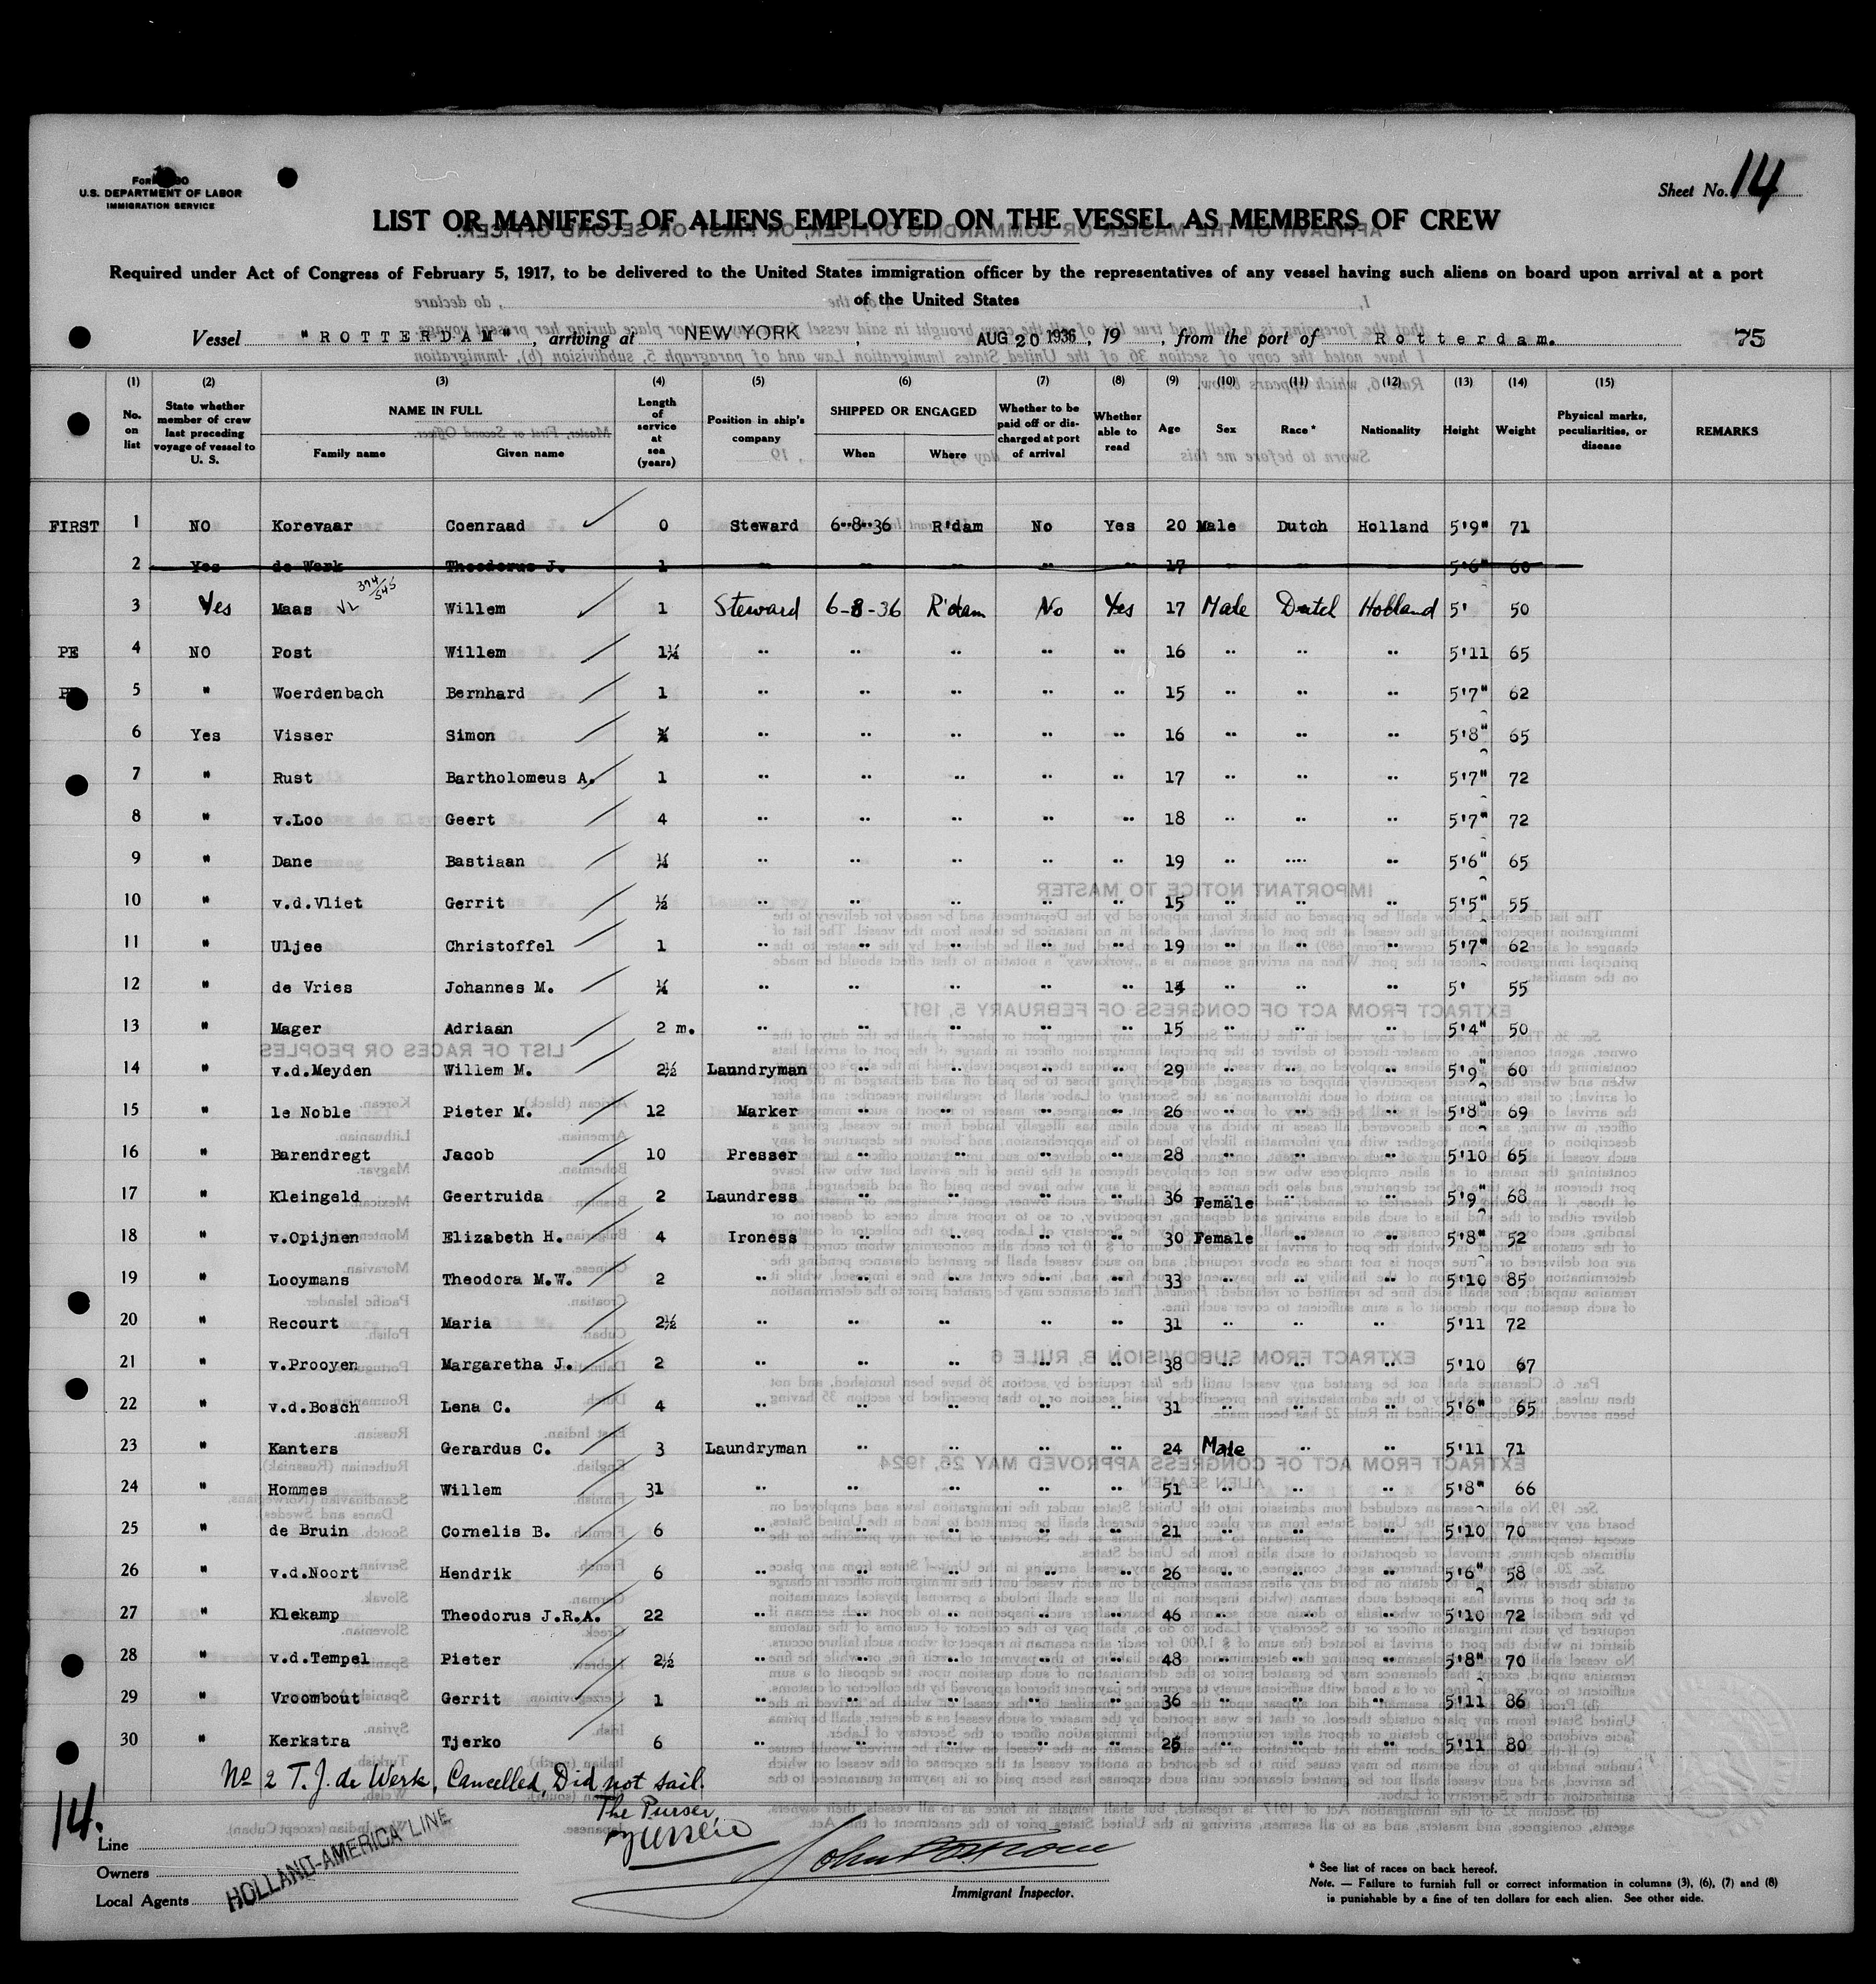 U.S. DEPARTMENT OF LABOR
IMMIGRATION SERVICE
Sheet No. 14
LIST OR MANIFEST OF ALIENS EMPLOYED ON THE VESSEL AS MEMBERS OF CREW
Required under Act of Congress of February 5, 1917, to be delivered to the United States immigration officer by the representatives of any vessel having such aliens on board upon arrival at a port
of the United States
Vessel "ROTTERDAM", arriving at NEW YORK, AUG 20 1936, 19 , from the port of Rotterdam. 75
(1) (2) (3) (4) (5) (6) (7) (8) (9) (10) (11) (12) (13) (14) (15)
No. on list State whether member of crew last preceding voyage of vessel to U. S. NAME IN FULL Family name Given name Length of service at sea (years) Position in ship's company SHIPPED OR ENGAGED When Where Whether to be paid off or discharged at port of arrival Whether able to read Age Sex Race* Nationality Height Weight Physical marks, peculiarities, or disease REMARKS
FIRST 1 NO Korevaar Coenraad 0 Steward 6-8-36 R'dam No Yes 20 Male Dutch Holland 5'9" 71
2 Yes de Werk Theodorus J. 1 " " " " " 17 5'6" 60
3 Yes Maas 374/545 Willem 1 Steward 6-8-36 R'dam No Yes 17 Male Dutch Holland 5' 50
PE 4 NO Post Willem 1¼ " " " " " 16 " " " 5'11 65
5 " Woerdenbach Bernhard 1 " " " " " 15 " " " 5'7" 62
6 Yes Visser Simon " " " " " 16 " " " 5'8" 65
7 " Rust Bartholomeus A. 1 " " " " " 17 " " " 5'7" 72
8 " v.Loo Geert 4 " " " " " 18 " " " 5'7" 72
9 " Dane Bastiaan ¼ " " " " " 19 " " " 5'6" 65
10 " v.d.Vliet Gerrit ½ " " " " " 15 " " " 5'5" 55
11 " Uljee Christoffel 1 " " " " " 19 " " " 5'7" 62
12 " de Vries Johannes M. ¼ " " " " " " " " 5' 55
13 " Mager Adriaan 2 m. " " " " " 15 " " " 5'4" 50
14 " v.d.Meyden Willem M. 2½ Laundryman " " " " 29 " " " 5'9" 60
15 " le Noble Pieter M. 12 Marker " " " " 26 " " " 5'8" 69
16 " Barendregt Jacob 10 Presser " " " " 28 " " " 5'10 65
17 " Kleingeld Geertruida 2 Laundress " " " " 36 Female " " 5'9" 68
18 " v.Opijnen Elizabeth H. 4 Ironess " " " " 30 Female " " 5'8" 52
19 " Looymans Theodora M.W. 2 " " " " " 33 " " " 5'10 85
20 " Recourt Maria 2½ " " " " " 31 " " " 5'11 72
21 " v.Prooyen Margaretha J. 2 " " " " " 38 " " " 5'10 67
22 " v.d.Bosch Lena C. 4 " " " " " 31 " " " 5'6" 65
23 " Kanters Gerardus C. 3 Laundryman " " " " 24 Male " " 5'11 71
24 " Hommes Willem 31 " " " " " 51 " " " 5'8" 66
25 " de Bruin Cornelis B. 6 " " " " " 21 " " " 5'10 70
26 " v.d.Noort Hendrik 6 " " " " " 26 " " " 5'6" 58
27 " Klekamp Theodorus J.R.A. 22 " " " " " 46 " " " 5'10 72
28 " v.d.Tempel Pieter 2½ " " " " " 48 " " " 5'8" 70
29 " Vroombout Gerrit 1 " " " " " 36 " " " 5'11 86
30 " Kerkstra Tjerko 6 " " " " " " " " 5'11 80
No 2 T. J. de Werk, Cancelled, Did not sail.
The Purser,
14.
Line
Owners
Local Agents
HOLLAND-AMERICA LINE
Immigrant Inspector.
* See list of races on back hereof.
Note. — Failure to furnish full or correct information in columns (3), (6), (7) and (8)
is punishable by a fine of ten dollars for each alien. See other side.